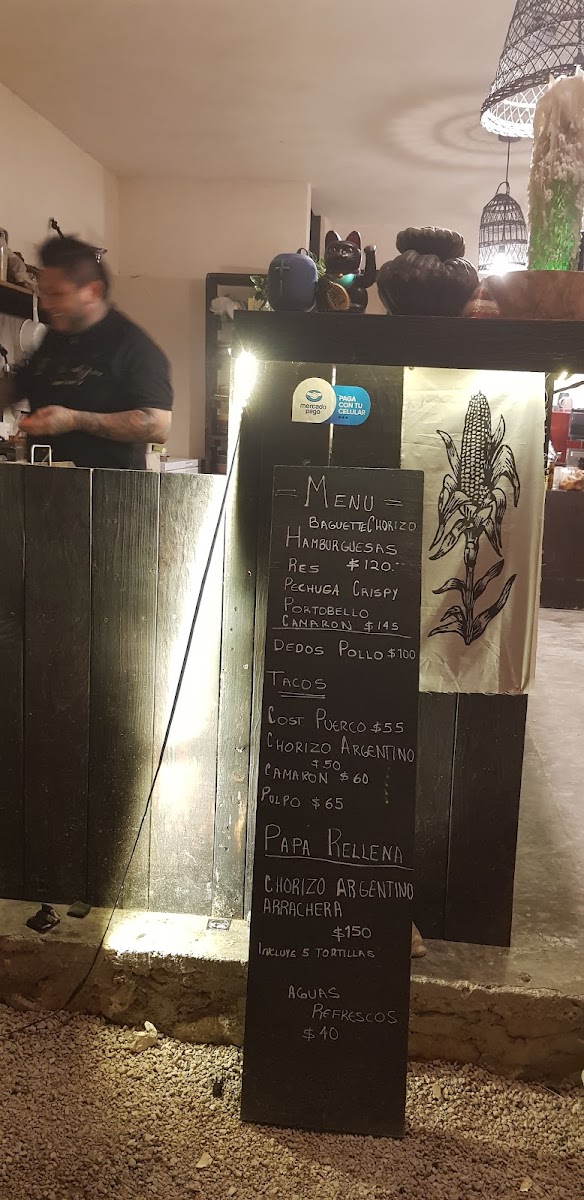 mercado
pago
PAGA
CON TU
CELULAR
= MENU =
BAGUETTE CHORIZO
HAMBURGUESAS
RES $120.-
PECHUGA CRISPY
PORTOBELLO
CAMARON $145
DEDOS POLLO $100
TACOS
COST PUERCO $55
CHORIZO ARGENTINO
$50
CAMARON $60
PULPO $65
PAPA RELLENA
CHORIZO ARGENTINO
ARRACHERA
$150
INCLUYE 5 TORTILLAS
AGUAS
REFRESCOS
$40